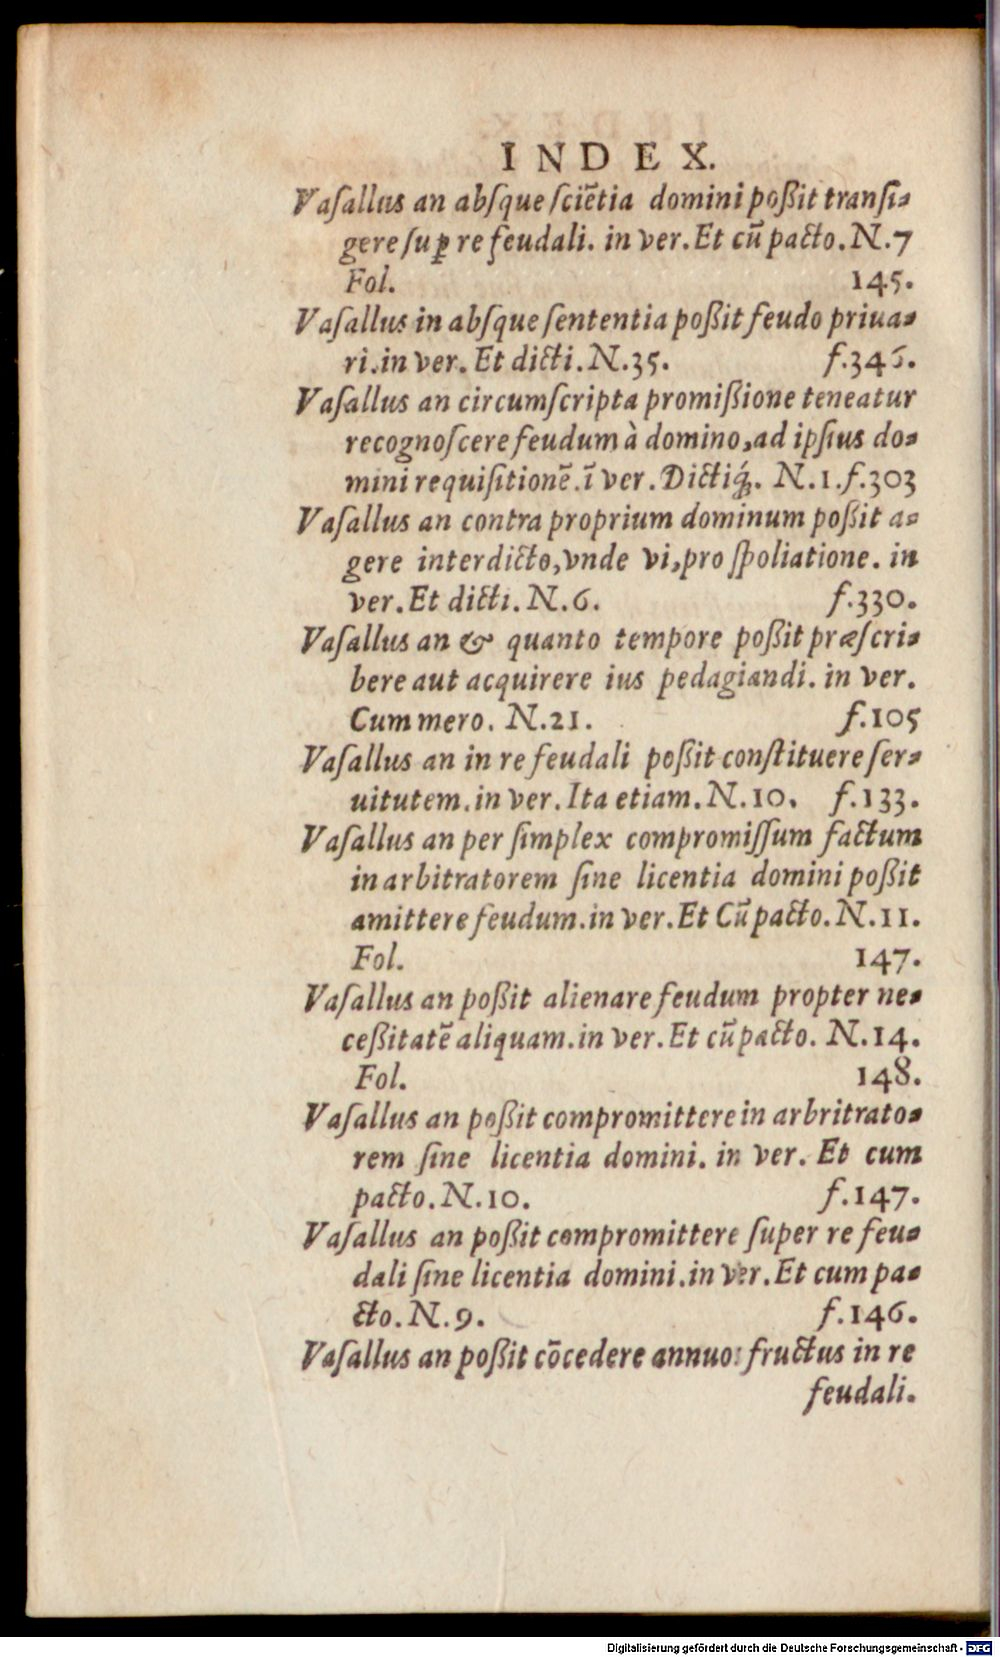 INDEX.
Vaſallus an abſque ſciētia domini poßit tranſi-
gere ſuꝑ re feudali. in ver. Et cū pacto. N.7
Fol. 145.
Vaſallus in abſque ſententia poßit feudo priua-
ri. in ver. Et dicti. N.35. f.346.
Vaſallus an circumſcripta promißione teneatur
recognoſcere feudum à domino, ad ipſius do-
mini requiſitionē. ī ver. Dictiq́;. N.1. f.303
Vaſallus an contra proprium dominum poßit a-
gere interdicto, vnde vi, pro ſpoliatione. in
ver. Et dicti. N.6. f.330.
Vaſallus an & quanto tempore poßit præſcri-
bere aut acquirere ius pedagiandi. in ver.
Cum mero. N.21. f.105
Vaſallus an in re feudali poßit conſtituere ſer-
uitutem. in ver. Ita etiam. N.10. f.133.
Vaſallus an per ſimplex compromiſſum factum
in arbitratorem ſine licentia domini poßit
amittere feudum. in ver. Et Cū pacto. N.11.
Fol. 147.
Vaſallus an poßit alienare feudum propter ne-
ceßitatē aliquam. in ver. Et cū pacto. N.14.
Fol. 148.
Vaſallus an poßit compromittere in arbritrato-
rem ſine licentia domini. in ver. Et cum
pacto. N.10. f.147.
Vaſallus an poßit compromittere ſuper re feu-
dali ſine licentia domini. in ver. Et cum pa-
cto. N.9. f.146.
Vaſallus an poßit cōcedere annuos fructus in re
feudali.
Digitalisierung gefördert durch die Deutsche Forschungsgemeinschaft - DFG